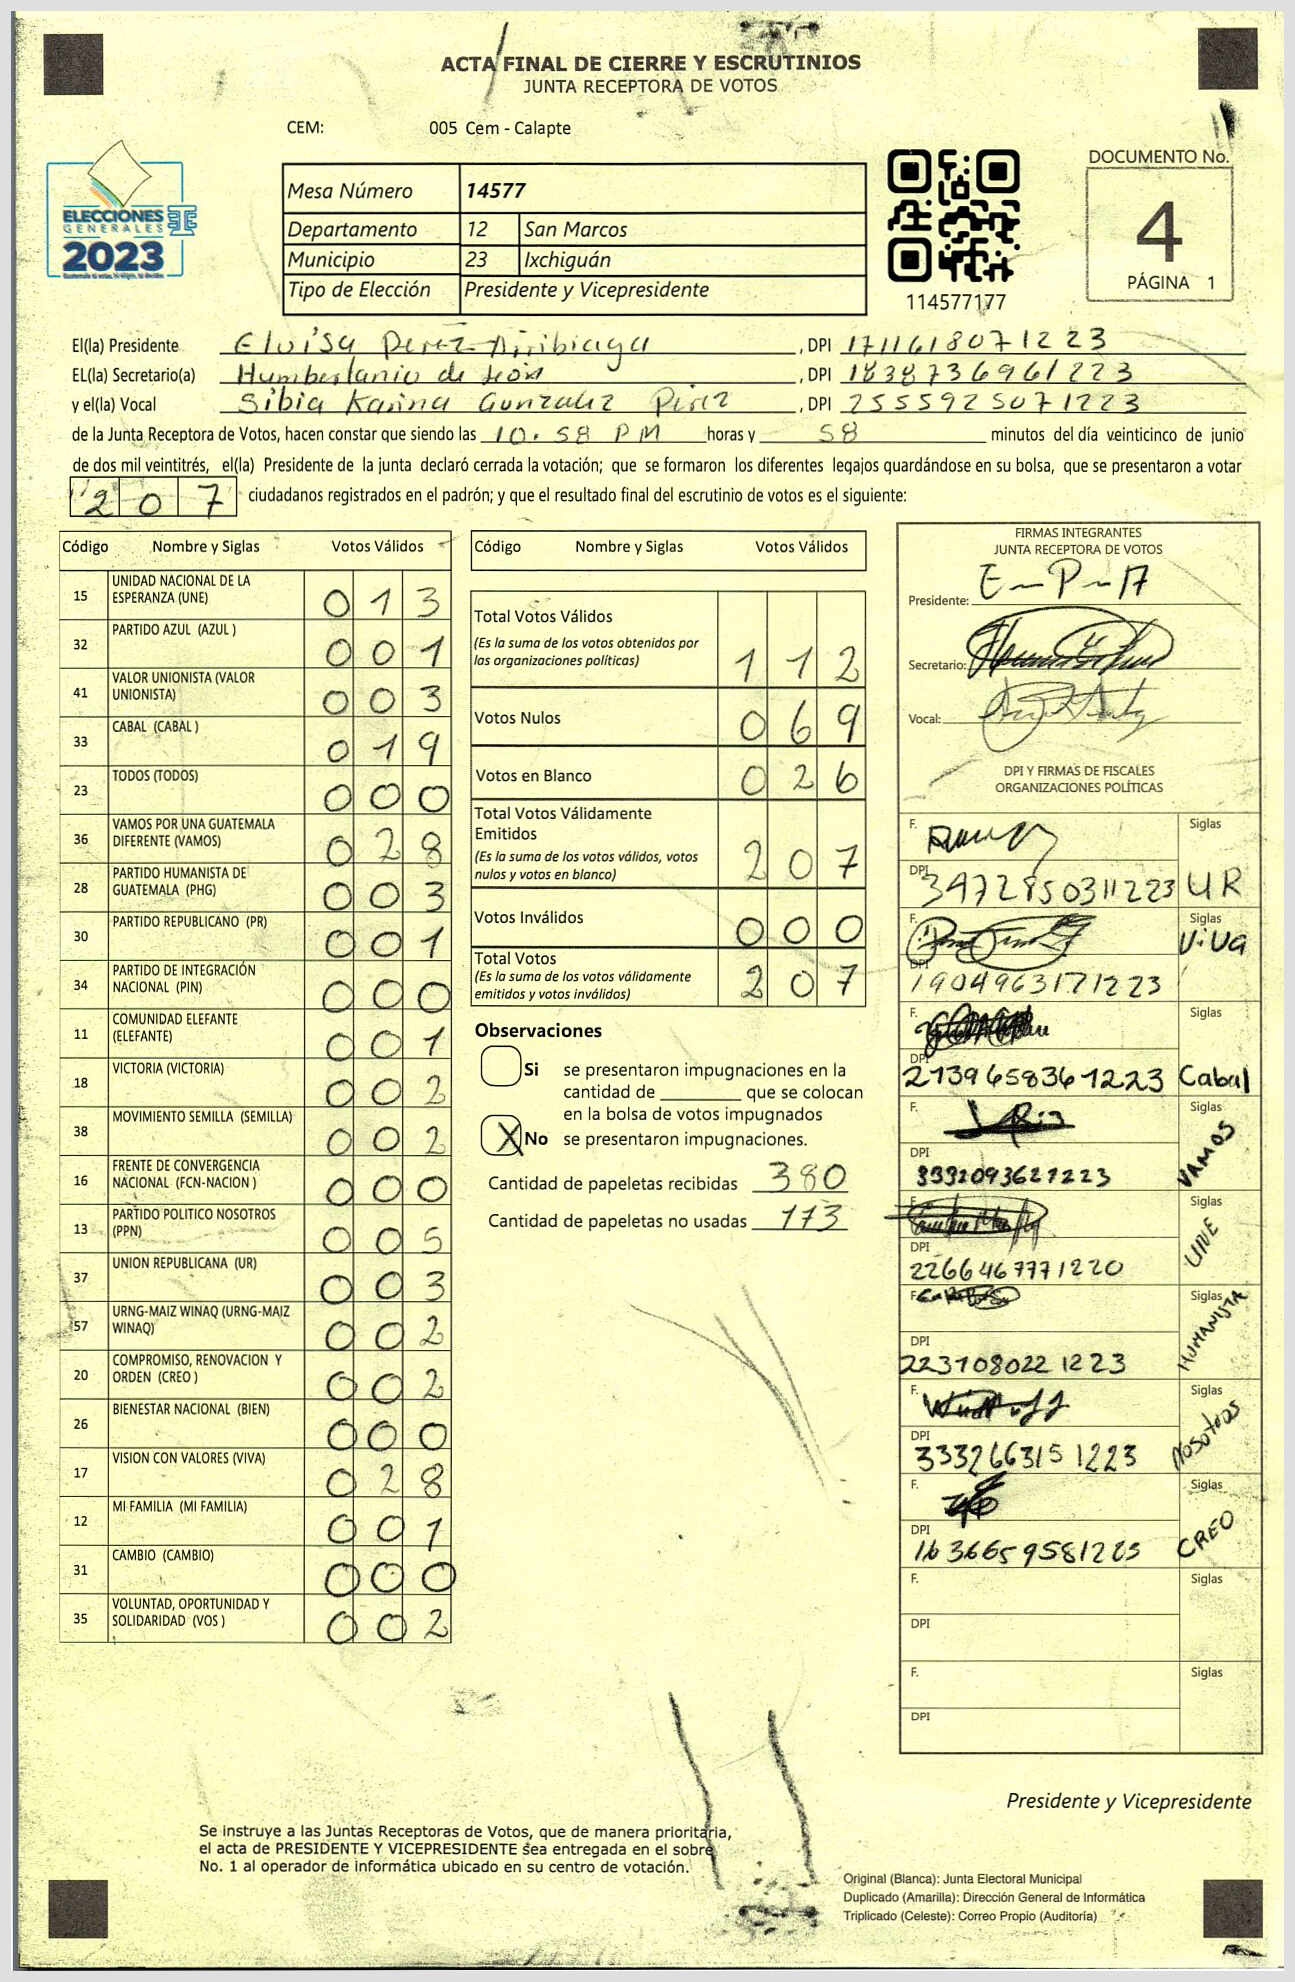 ACTA FINAL DE CIERRE Y ESCRUTINIOS
JUNTA RECEPTORA DE VOTOS
CEM: 005 Cem - Calapte
ELECCIONES
GENERALES
2023
Mesa Número 14577
Departamento 12 San Marcos
Municipio 23 Ixchiguán
Tipo de Elección Presidente y Vicepresidente
114577177
DOCUMENTO No.
4
PÁGINA 1
El(la) Presidente Eloisa Perez , DPI 1711618071223
EL(la) Secretario(a) de León , DPI 1838736961223
y el(la) Vocal Sibia Karina Gonzalez Pérez , DPI 2555925071223
de la Junta Receptora de Votos, hacen constar que siendo las 10.58 PM horas y 58 minutos del día veinticinco de junio
de dos mil veintitrés, el(la) Presidente de la junta declaró cerrada la votación; que se formaron los diferentes legajos guardándose en su bolsa, que se presentaron a votar
207 ciudadanos registrados en el padrón; y que el resultado final del escrutinio de votos es el siguiente:
Código Nombre y Siglas Votos Válidos
15 UNIDAD NACIONAL DE LA ESPERANZA (UNE) 013
32 PARTIDO AZUL (AZUL ) 001
41 VALOR UNIONISTA (VALOR UNIONISTA) 003
33 CABAL (CABAL ) 019
23 TODOS (TODOS) 000
36 VAMOS POR UNA GUATEMALA DIFERENTE (VAMOS) 028
28 PARTIDO HUMANISTA DE GUATEMALA (PHG) 003
30 PARTIDO REPUBLICANO (PR) 001
34 PARTIDO DE INTEGRACIÓN NACIONAL (PIN) 000
11 COMUNIDAD ELEFANTE (ELEFANTE) 001
18 VICTORIA (VICTORIA) 002
38 MOVIMIENTO SEMILLA (SEMILLA) 002
16 FRENTE DE CONVERGENCIA NACIONAL (FCN-NACION ) 000
13 PARTIDO POLITICO NOSOTROS (PPN) 005
37 UNION REPUBLICANA (UR) 003
57 URNG-MAIZ WINAQ (URNG-MAIZ WINAQ) 002
20 COMPROMISO, RENOVACION Y ORDEN (CREO ) 002
26 BIENESTAR NACIONAL (BIEN) 000
17 VISION CON VALORES (VIVA) 028
12 MI FAMILIA (MI FAMILIA) 001
31 CAMBIO (CAMBIO) 000
35 VOLUNTAD, OPORTUNIDAD Y SOLIDARIDAD (VOS ) 002
Código Nombre y Siglas Votos Válidos
Total Votos Válidos
(Es la suma de los votos obtenidos por
las organizaciones políticas) 112
Votos Nulos 069
Votos en Blanco 026
Total Votos Válidamente
Emitidos
(Es la suma de los votos válidos, votos
nulos y votos en blanco) 207
Votos Inválidos 000
Total Votos
(Es la suma de los votos válidamente
emitidos y votos inválidos) 207
Observaciones
Si se presentaron impugnaciones en la
cantidad de ________ que se colocan
en la bolsa de votos impugnados
X No se presentaron impugnaciones.
Cantidad de papeletas recibidas 380
Cantidad de papeletas no usadas 173
FIRMAS INTEGRANTES
JUNTA RECEPTORA DE VOTOS
Presidente: E-P-A
Secretario:
Vocal:
DPI Y FIRMAS DE FISCALES
ORGANIZACIONES POLÍTICAS
F. Siglas
DPI 3472850311223 UR
F. Siglas
DPI 1904963171223 ViVa
F. Siglas
DPI 2139658361223 Cabal
F. Siglas
DPI 3332093627223 VAMOS
F. Siglas
DPI 2266467771220 UNE
F. Siglas
DPI 2231080221223 HUMANISTA
F. Siglas
DPI 3332663151223 Nosotros
F. Siglas
DPI 1636659581223 CREO
F. Siglas
DPI
F. Siglas
DPI
Presidente y Vicepresidente
Se instruye a las Juntas Receptoras de Votos, que de manera prioritaria,
el acta de PRESIDENTE Y VICEPRESIDENTE sea entregada en el sobre
No. 1 al operador de informática ubicado en su centro de votación.
Original (Blanca): Junta Electoral Municipal
Duplicado (Amarilla): Dirección General de Informática
Triplicado (Celeste): Correo Propio (Auditoría)